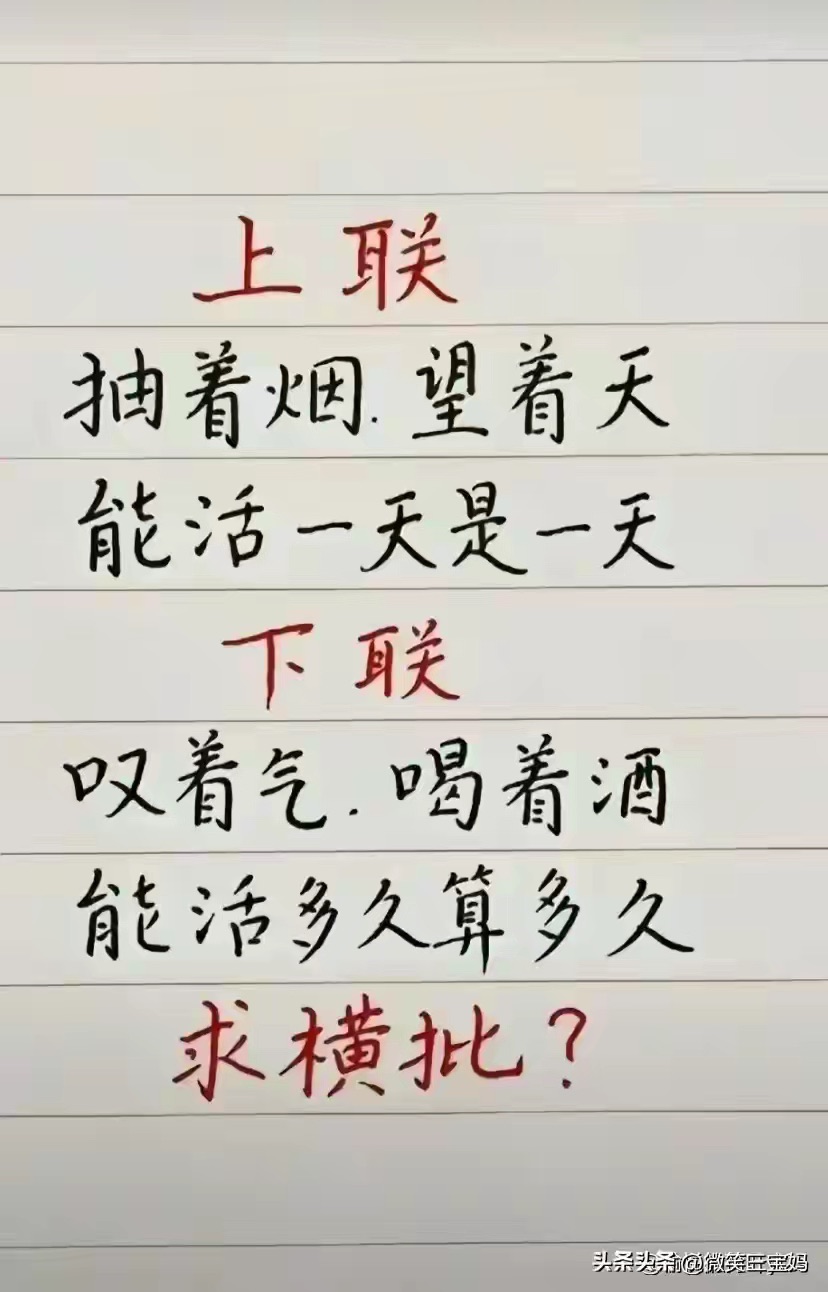 上联
抽着烟.望着天
能活一天是一天
下联
叹着气.喝着酒
能活多久算多久
求横批?
头条头条@微笑三宝妈